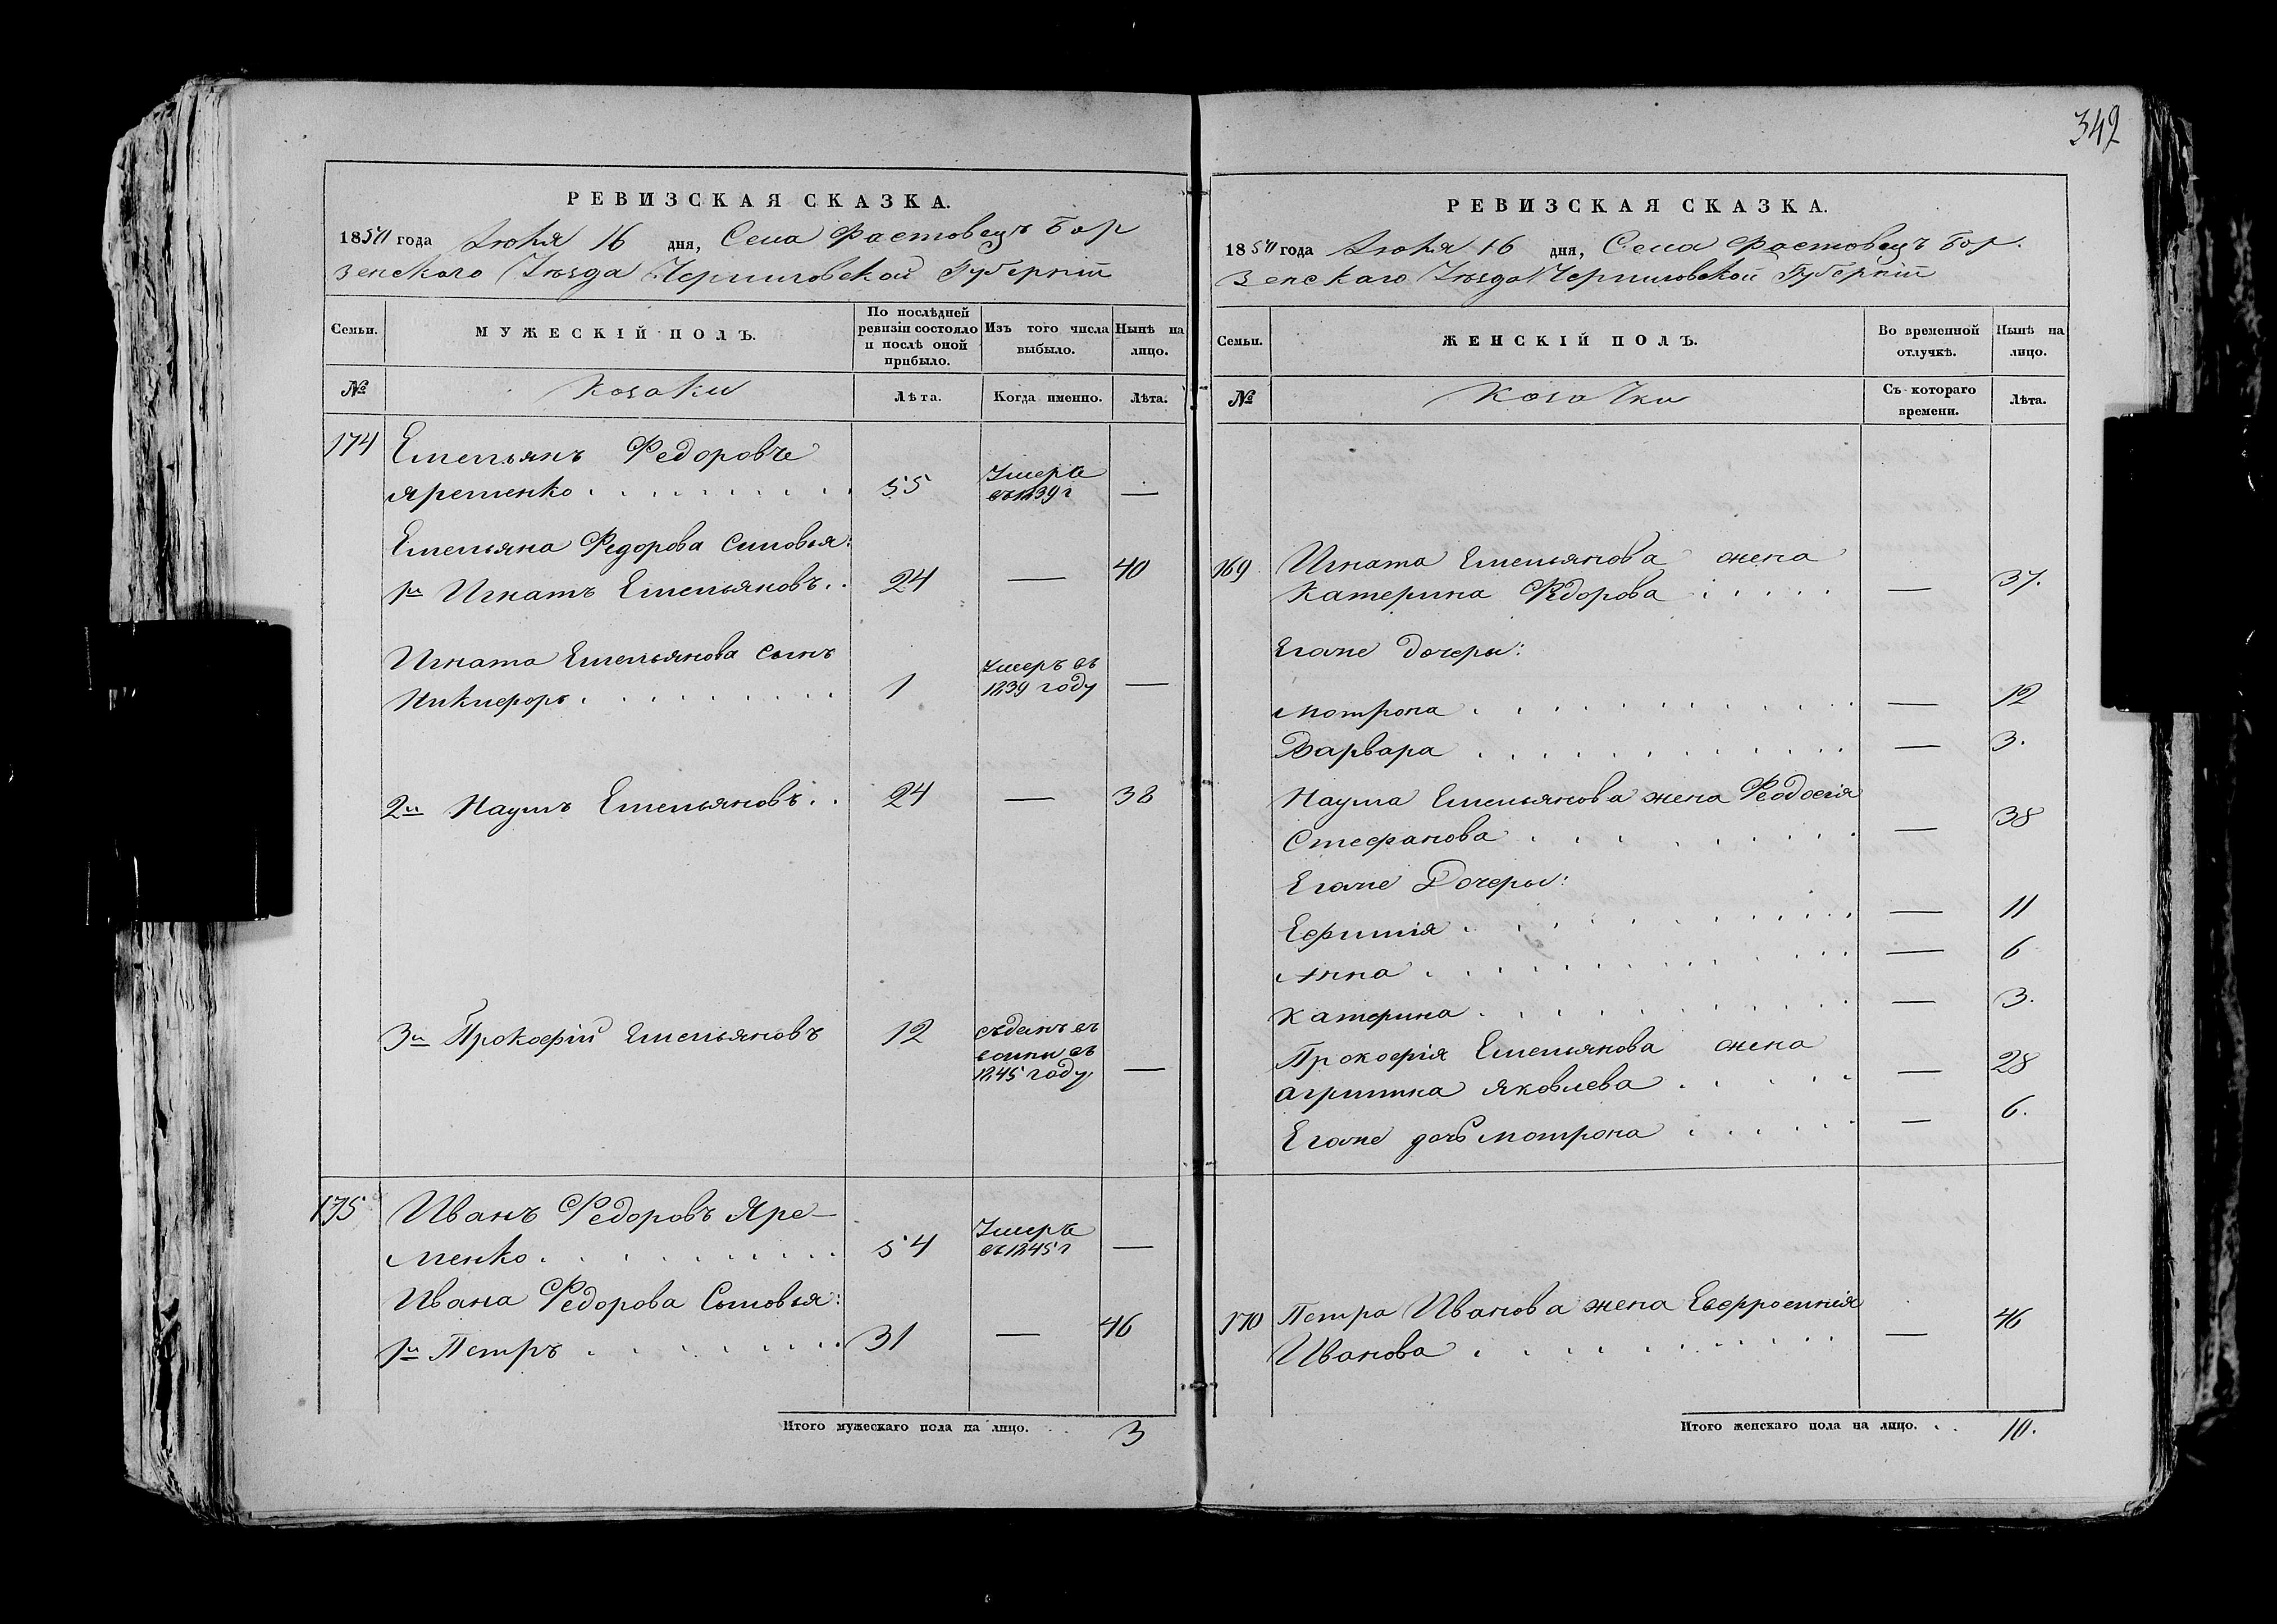 342
РЕВИЗСКАЯ СКАЗКА.
1850 года Июня 16 дня, Села Фастовецъ Бор
зенскаго Уѣзда Черниговской Губерніи
Семьи. МУЖЕСКІЙ ПОЛЪ. По послѣдней ревизіи состояло и послѣ оной прибыло. Изъ того числа выбыло. Нынѣ на лицо.
№ Козаки Лѣта. Когда именно. Лѣта.
174 Емельянъ Федоровъ
Яременко 55 Умеръ въ 1839 г —
Емельяна Федорова Сыновья:
1й Игнатъ Емельяновъ 24 — 40
Игната Емельянова сынъ
Никифоръ 1 Умеръ въ 1839 году —
2й Наумъ Емельяновъ 24 — 38
3й Прокофій Емельяновъ 12 въ 1845 году —
175 Иванъ Федоровъ Яре-
менко 54 Умеръ въ 1845 г —
Ивана Федорова Сыновья:
1й Петръ 31 — 46
Итого мужескаго пола на лицо. 3
РЕВИЗСКАЯ СКАЗКА.
1850 года Июня 16 дня, Села Фастовецъ Бор.
зенскаго Уѣзда Черниговской Губерніи
Семьи. ЖЕНСКІЙ ПОЛЪ. Во временной отлучкѣ. Нынѣ на лицо.
№ Козачки Съ котораго времени. Лѣта.
169 Игната Емельянова жена
Катерина Федорова — 37.
Егоже дочери:
Мотрона — 12
Варвара — 3.
Наума Емельянова жена Феодосія
Стефанова — 38
Егоже Дочери:
Ефимія — 11
Анна — 6
Катерина — 3.
Прокофія Емельянова жена
Агрипина Яковлева — 28
Егоже дочь Мотрона — 6.
170 Петра Иванова жена
Иванова — 46
Итого женскаго пола на лицо. 10.